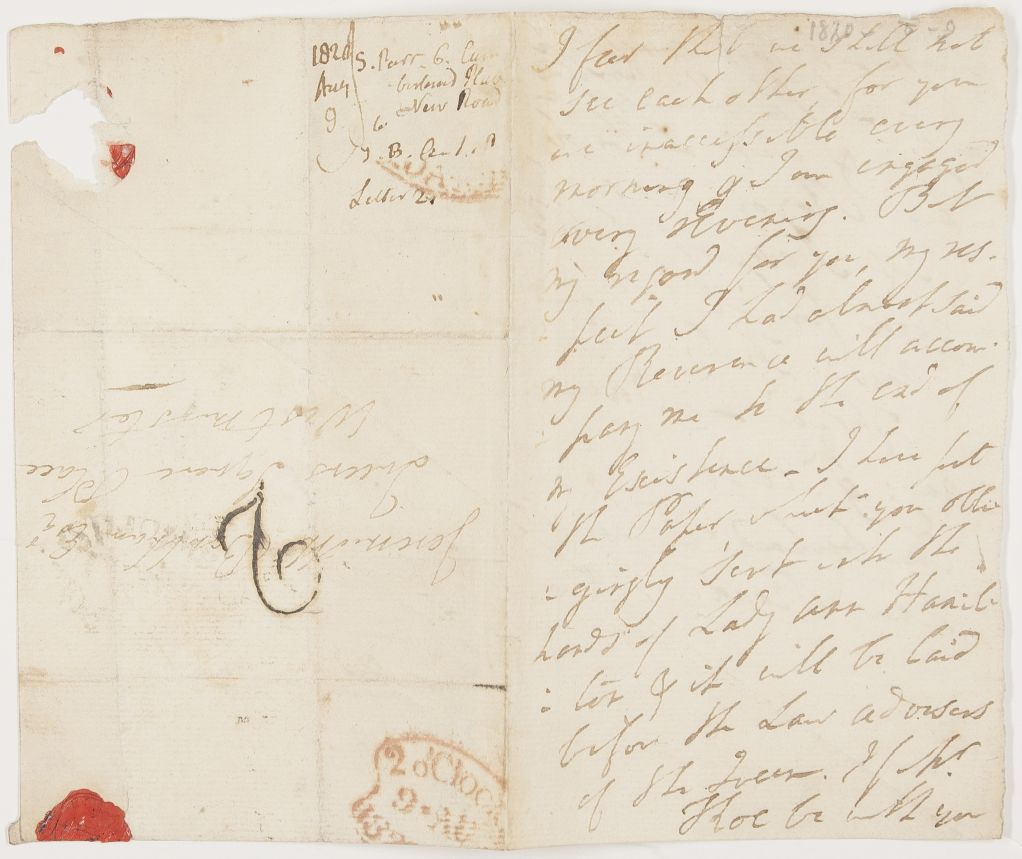 1820
Aug
9
S. Parr. 6. Cum
berland Place
New Road
to
J. B. Q.S.P.
Letter 2.
Jeremiah Bentham Esqr
Queens Square Place
Westminster
2 o'Clock
9. AU
1820 - 8 - 9
I fear that we shall not
see each other, for you
are inaccessible every
morning & I am engaged
every Evening. But
my regard for you, my res-
pect I had almost said
my Reverence will accom-
pany me to the end of
my Existence - I have put
the Paper which you obli
-gingly sent into the
hands of Lady Ann Hamil
-ton & it will be laid
before the Law advisers
of the Queen. If Mr.
Koe be with you